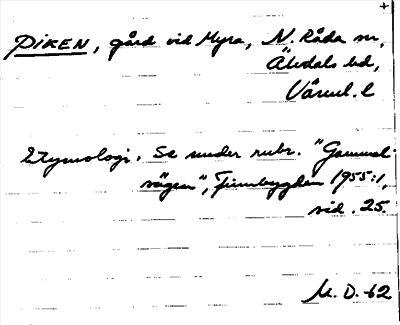 PIKEN, gård vid Myra, N. Råda sn,
Älvdals hd,
Värml. l
Etymologi. Se under rubr. "Gammel-
vägen", Finnbygden 1955:1,
sid. 25.
M. D. -62